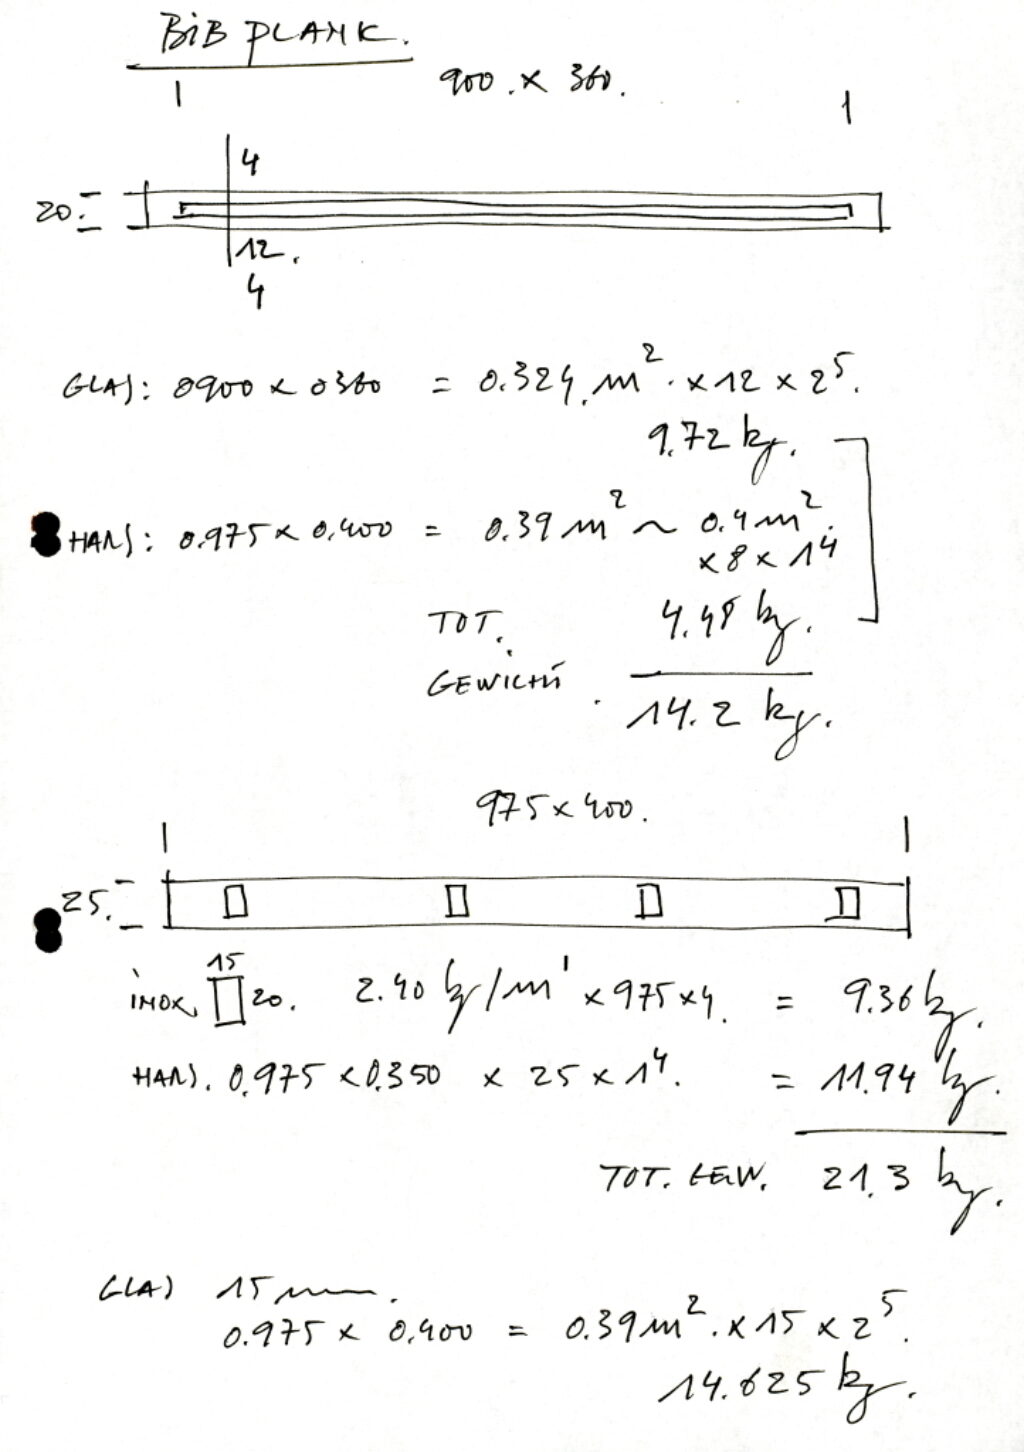 BIB PLANK.
900 . x 360.
4
20
12.
4
GLAS: 0900 x 0360 = 0.324 m² . x 12 x 2⁵.
9.72 kg.
HARS: 0.975 x 0.400 = 0.39 m² ~ 0.4 m².
x 8 x 1⁴
TOT. 4.48 kg.
GEWICHT . 14.2 kg.
975 x 400.
25.
15
INOX 20. 2.40 kg/m' x 975 x 4. = 9.36 kg.
HARS. 0.975 x 0.350 x 25 x 1⁴. = 11.94 kg.
TOT. GEW. 21.3 kg.
GLAS 15 mm.
0.975 x 0.400 = 0.39 m² . x 15 x 2⁵.
14.625 kg.